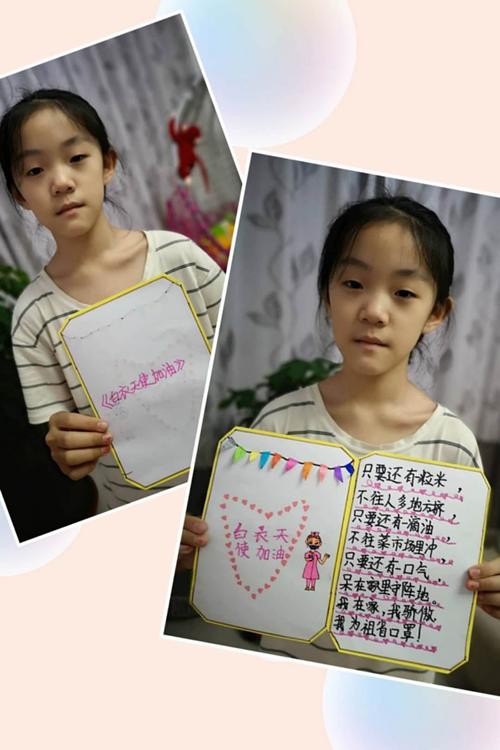 《白衣天使加油》
白衣天
使加油
只要还有粒米，
不往人多地方挤，
只要还有滴油，
不往菜市场里冲，
只要还有口气，
呆在家里守阵地。
我在家，我骄傲，
我为祖省口罩！